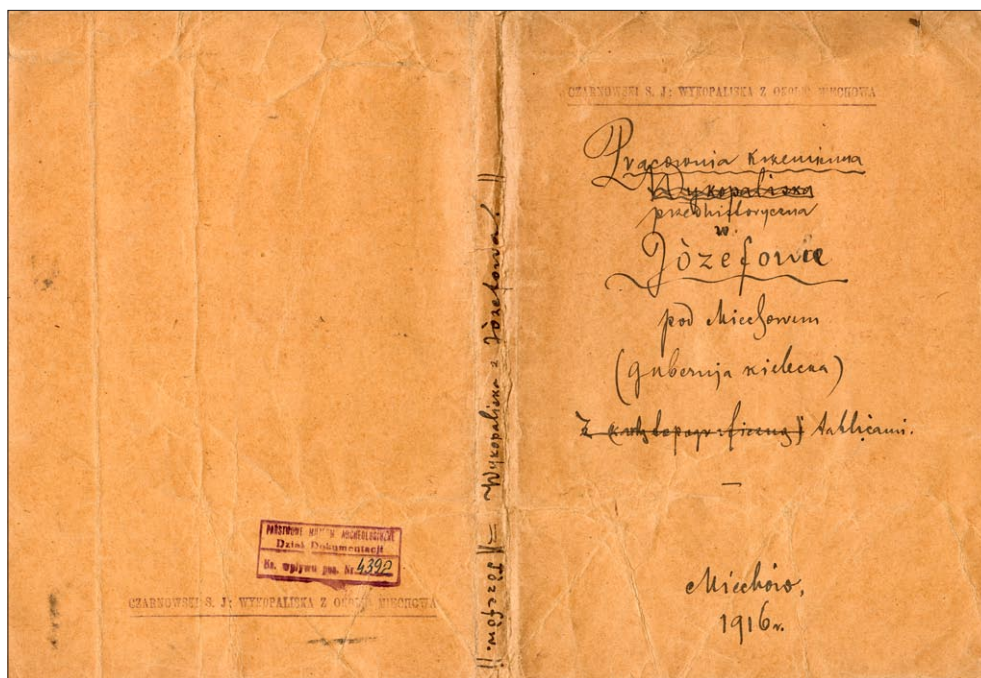 CZARNOWSKI S. J: WYKOPALISKA Z OKOLIC MIECHOWA
Pracownia krzemienna
Wykopaliska
przedhistoryczna
w.
Józefowie
pod Miechowem
(gubernija kielecka)
Z kartą topograficzną i tablicami.
—
Miechów,
1916 r.
Józefów. || — Wykopaliska z Józefowa. ||
PAŃSTWOWE MUZEUM ARCHEOLOGICZNE
Dział Dokumentacji
Ks. wpływu poz. Nr. 4392
CZARNOWSKI S. J: WYKOPALISKA Z OKOLIC MIECHOWA